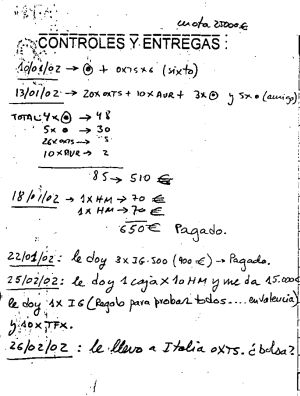 nota 25000€
CONTROLES Y ENTREGAS :
10/01/02 → ⊙ + OXTS X 6 (sixto)
13/01/02 → 20X OXTS + 10 X AUR + 3X ⊙ y 5X • (amigo)
TOTAL: 4X ⊙ → 48
5X • → 30
26X OXTS → 5
10 X AUR → 2
85 → 510 €
18/01/02 → 1X HM → 70 €
1X HM → 70 €
650 € Pagado.
22/01/02 : le doy 3X IG-500 (900 €) → Pagado.
25/02/02 : le doy 1 caja X 10 HM y me da 15.000€
le doy 1X IG (Regalo para probar todos .... en Valencia)
y 10X TFX.
26/02/02 : le llevo a Italia OXTS. ¿bolsa?